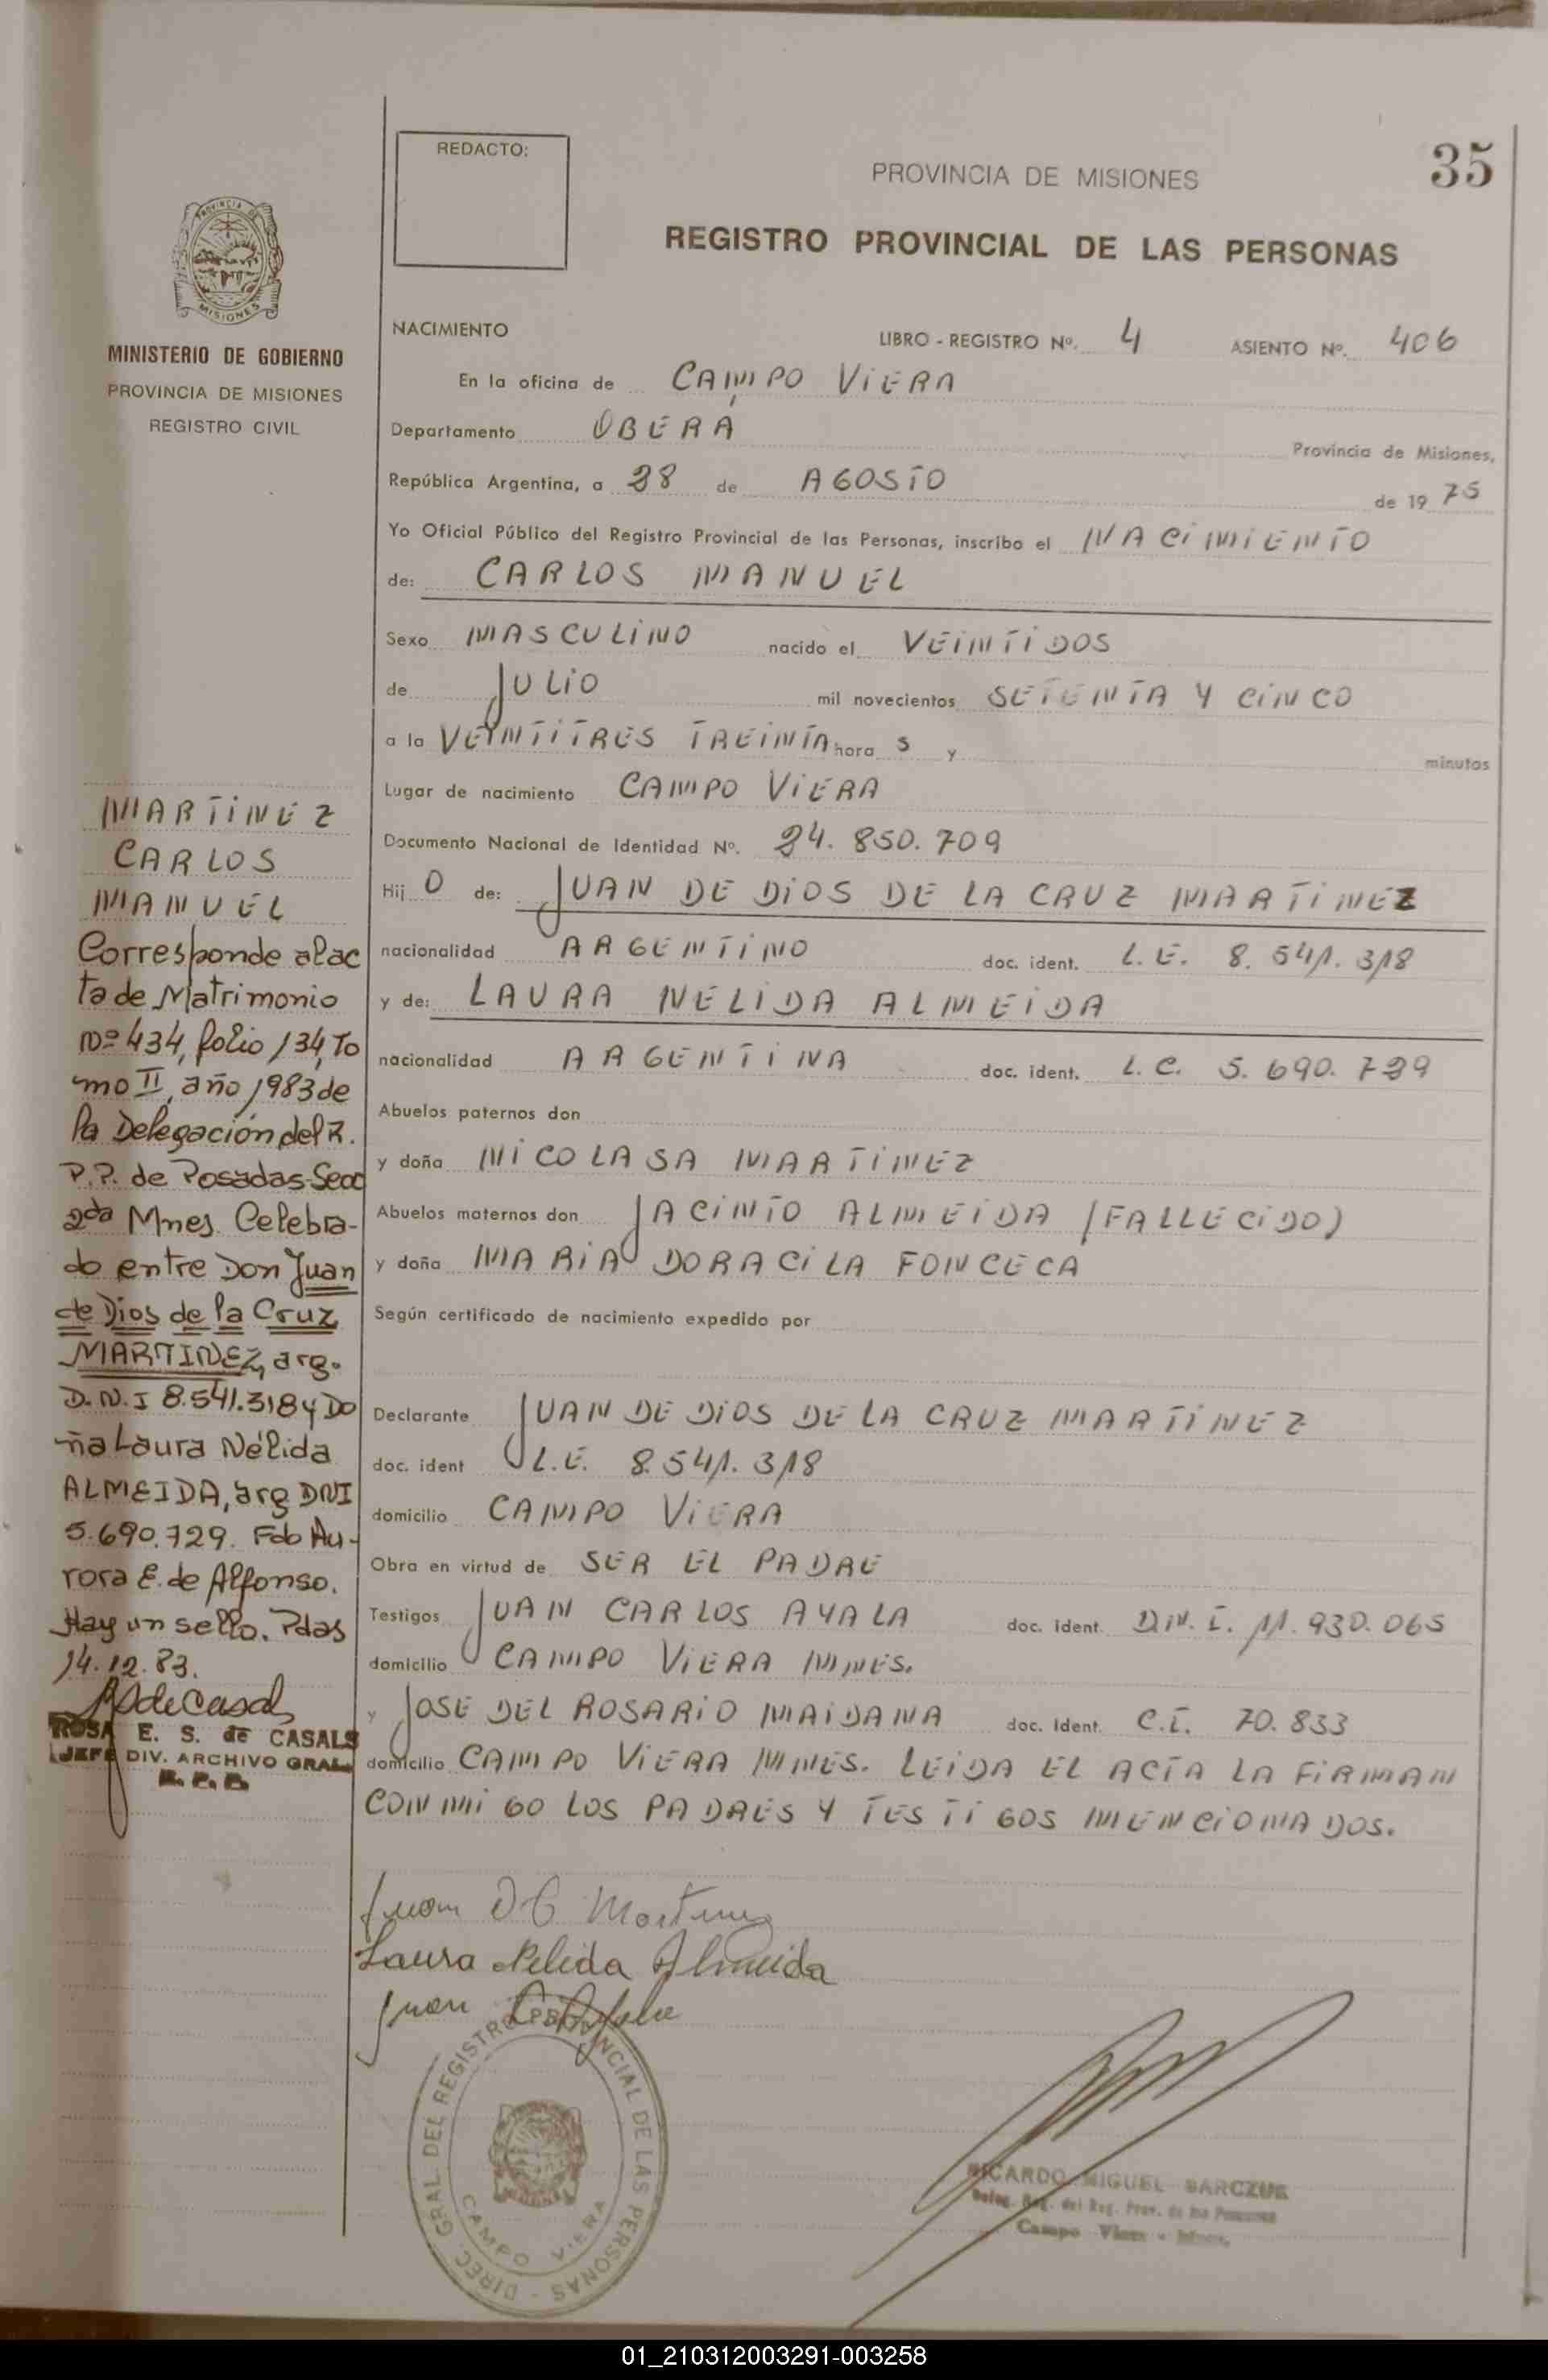 REDACTO:
PROVINCIA DE MISIONES
35
REGISTRO PROVINCIAL DE LAS PERSONAS
PROVINCIA DE
MISIONES
MINISTERIO DE GOBIERNO
PROVINCIA DE MISIONES
REGISTRO CIVIL
NACIMIENTO
LIBRO - REGISTRO Nº. 4 ASIENTO Nº. 406
En la oficina de CAMPO VIERA
Departamento OBERÁ Provincia de Misiones,
República Argentina, a 28 de AGOSTO de 1975
Yo Oficial Público del Registro Provincial de las Personas, inscribo el NACIMIENTO
de: CARLOS MANUEL
Sexo MASCULINO nacido el VEINTIDOS
de JULIO mil novecientos SETENTA Y CINCO
a la VEINTITRES TREINTA hora s y minutos
Lugar de nacimiento CAMPO VIERA
Documento Nacional de Identidad Nº. 24.850.709
Hij O de: JUAN DE DIOS DE LA CRUZ MARTINEZ
nacionalidad ARGENTINO doc. ident. L.E. 8.541.318
y de: LAURA NELIDA ALMEIDA
nacionalidad ARGENTINA doc. ident. L.C. 5.690.729
Abuelos paternos don
y doña NICOLASA MARTINEZ
Abuelos maternos don JACINTO ALMEIDA (FALLECIDO)
y doña MARIA DORACILA FONCECA
Según certificado de nacimiento expedido por
Declarante JUAN DE DIOS DE LA CRUZ MARTINEZ
doc. ident L.E. 8.541.318
domicilio CAMPO VIERA
Obra en virtud de SER EL PADRE
Testigos JUAN CARLOS AYALA doc. ident. D.N.I. 11.930.065
domicilio CAMPO VIERA MNES.
y JOSE DEL ROSARIO MAIDANA doc. Ident. C.I. 70.833
domicilio CAMPO VIERA MNES. LEIDA EL ACTA LA FIRMAN
CONMIGO LOS PADRES Y TESTIGOS MENCIONADOS.
MARTINEZ
CARLOS
MANUEL
Corresponde al ac
ta de Matrimonio
Nº 434, folio 134, To
mo II, año 1983 de
la Delegación del R.
P.P. de Posadas-Secc
2da Mnes. Celebra-
do entre Don Juan
de Dios de la Cruz
MARTINEZ, arg.
D.N.I 8.541.318 y Do
ña Laura Nélida
ALMEIDA, arg DNI
5.690.729. Fdo Au-
rora E. de Alfonso.
Hay un sello. Pdas
14.12.83.
ROSA E. S. de CASALS
JEFE DIV. ARCHIVO GRAL.
R. P. P.
Juan D C Martinez
Laura Nelida Almeida
Juan C Ayala
DIREC. GRAL. DEL REGISTRO PROVINCIAL DE LAS PERSONAS -
CAMPO VIERA
RICARDO MIGUEL
Deleg. del Reg. Prov. de las Personas
Campo Viera - Mnes.
01_210312003291-003258